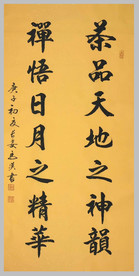 茶品天地之神韻
禪悟日月之精華
庚子初夏
書